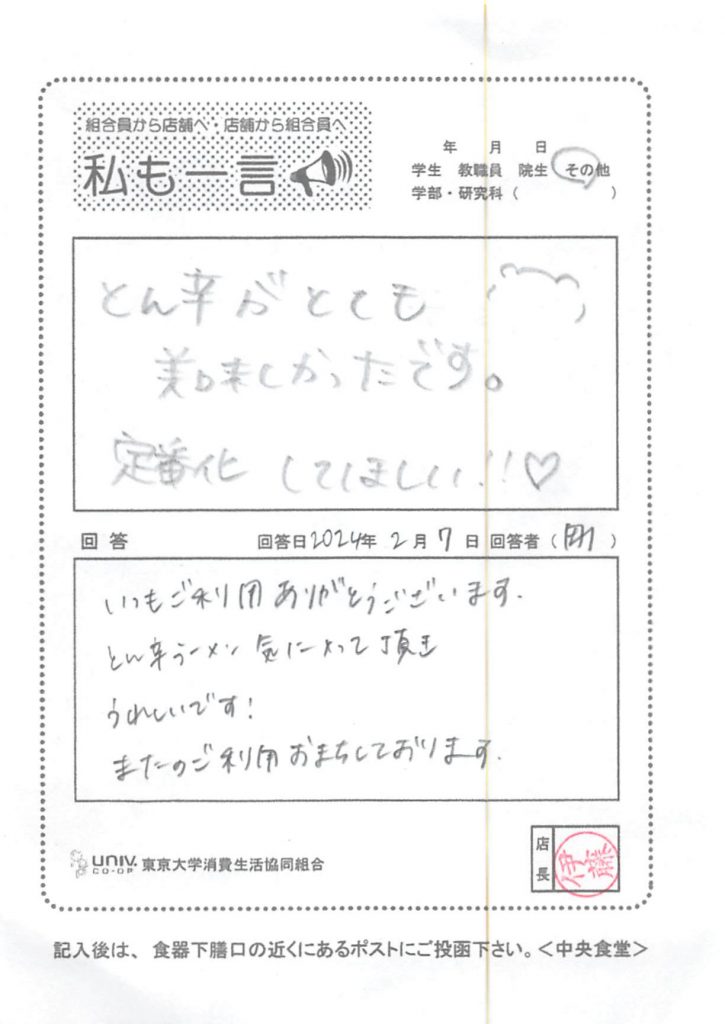 組合員から店舗へ・店舗から組合員へ
私も一言
年 月 日
学生 教職員 院生 その他
学部・研究科（ ）
とん辛がとても
美味しかったです。
定番化 してほしい!!♡
回答 回答日2024年 2月 7日 回答者（ ）
いつもご利用ありがとうございます.
とん辛ラーメン 気に入って頂き
うれしいです!
またのご利用おまちしております.
UNIV. CO-OP 東京大学消費生活協同組合
店長 伊藤
記入後は、食器下膳口の近くにあるポストにご投函下さい。＜中央食堂＞